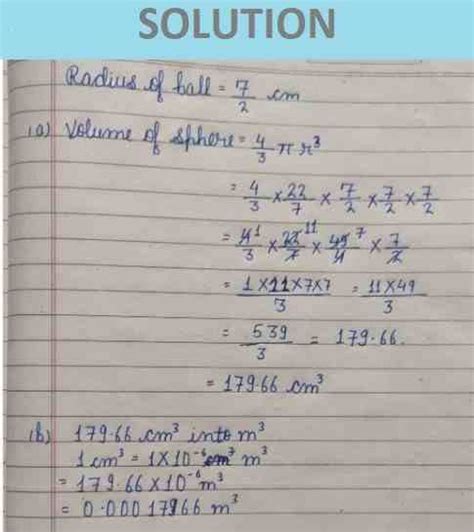 SOLUTION
Radius of ball = 7/2 cm
(a) Volume of sphere = 4/3 π r³
= 4/3 × 22/7 × 7/2 × 7/2 × 7/2
= 4¹/3 × 22¹¹/7 × 49⁷/4 × 7/2
= 1×11×7×7/3 = 11×49/3
= 539/3 = 179.66.
= 179.66 cm³
(b) 179.66 cm³ into m³
1 cm³ = 1×10⁻⁶ m³
= 179.66 × 10⁻⁶ m³
= 0.00017966 m³